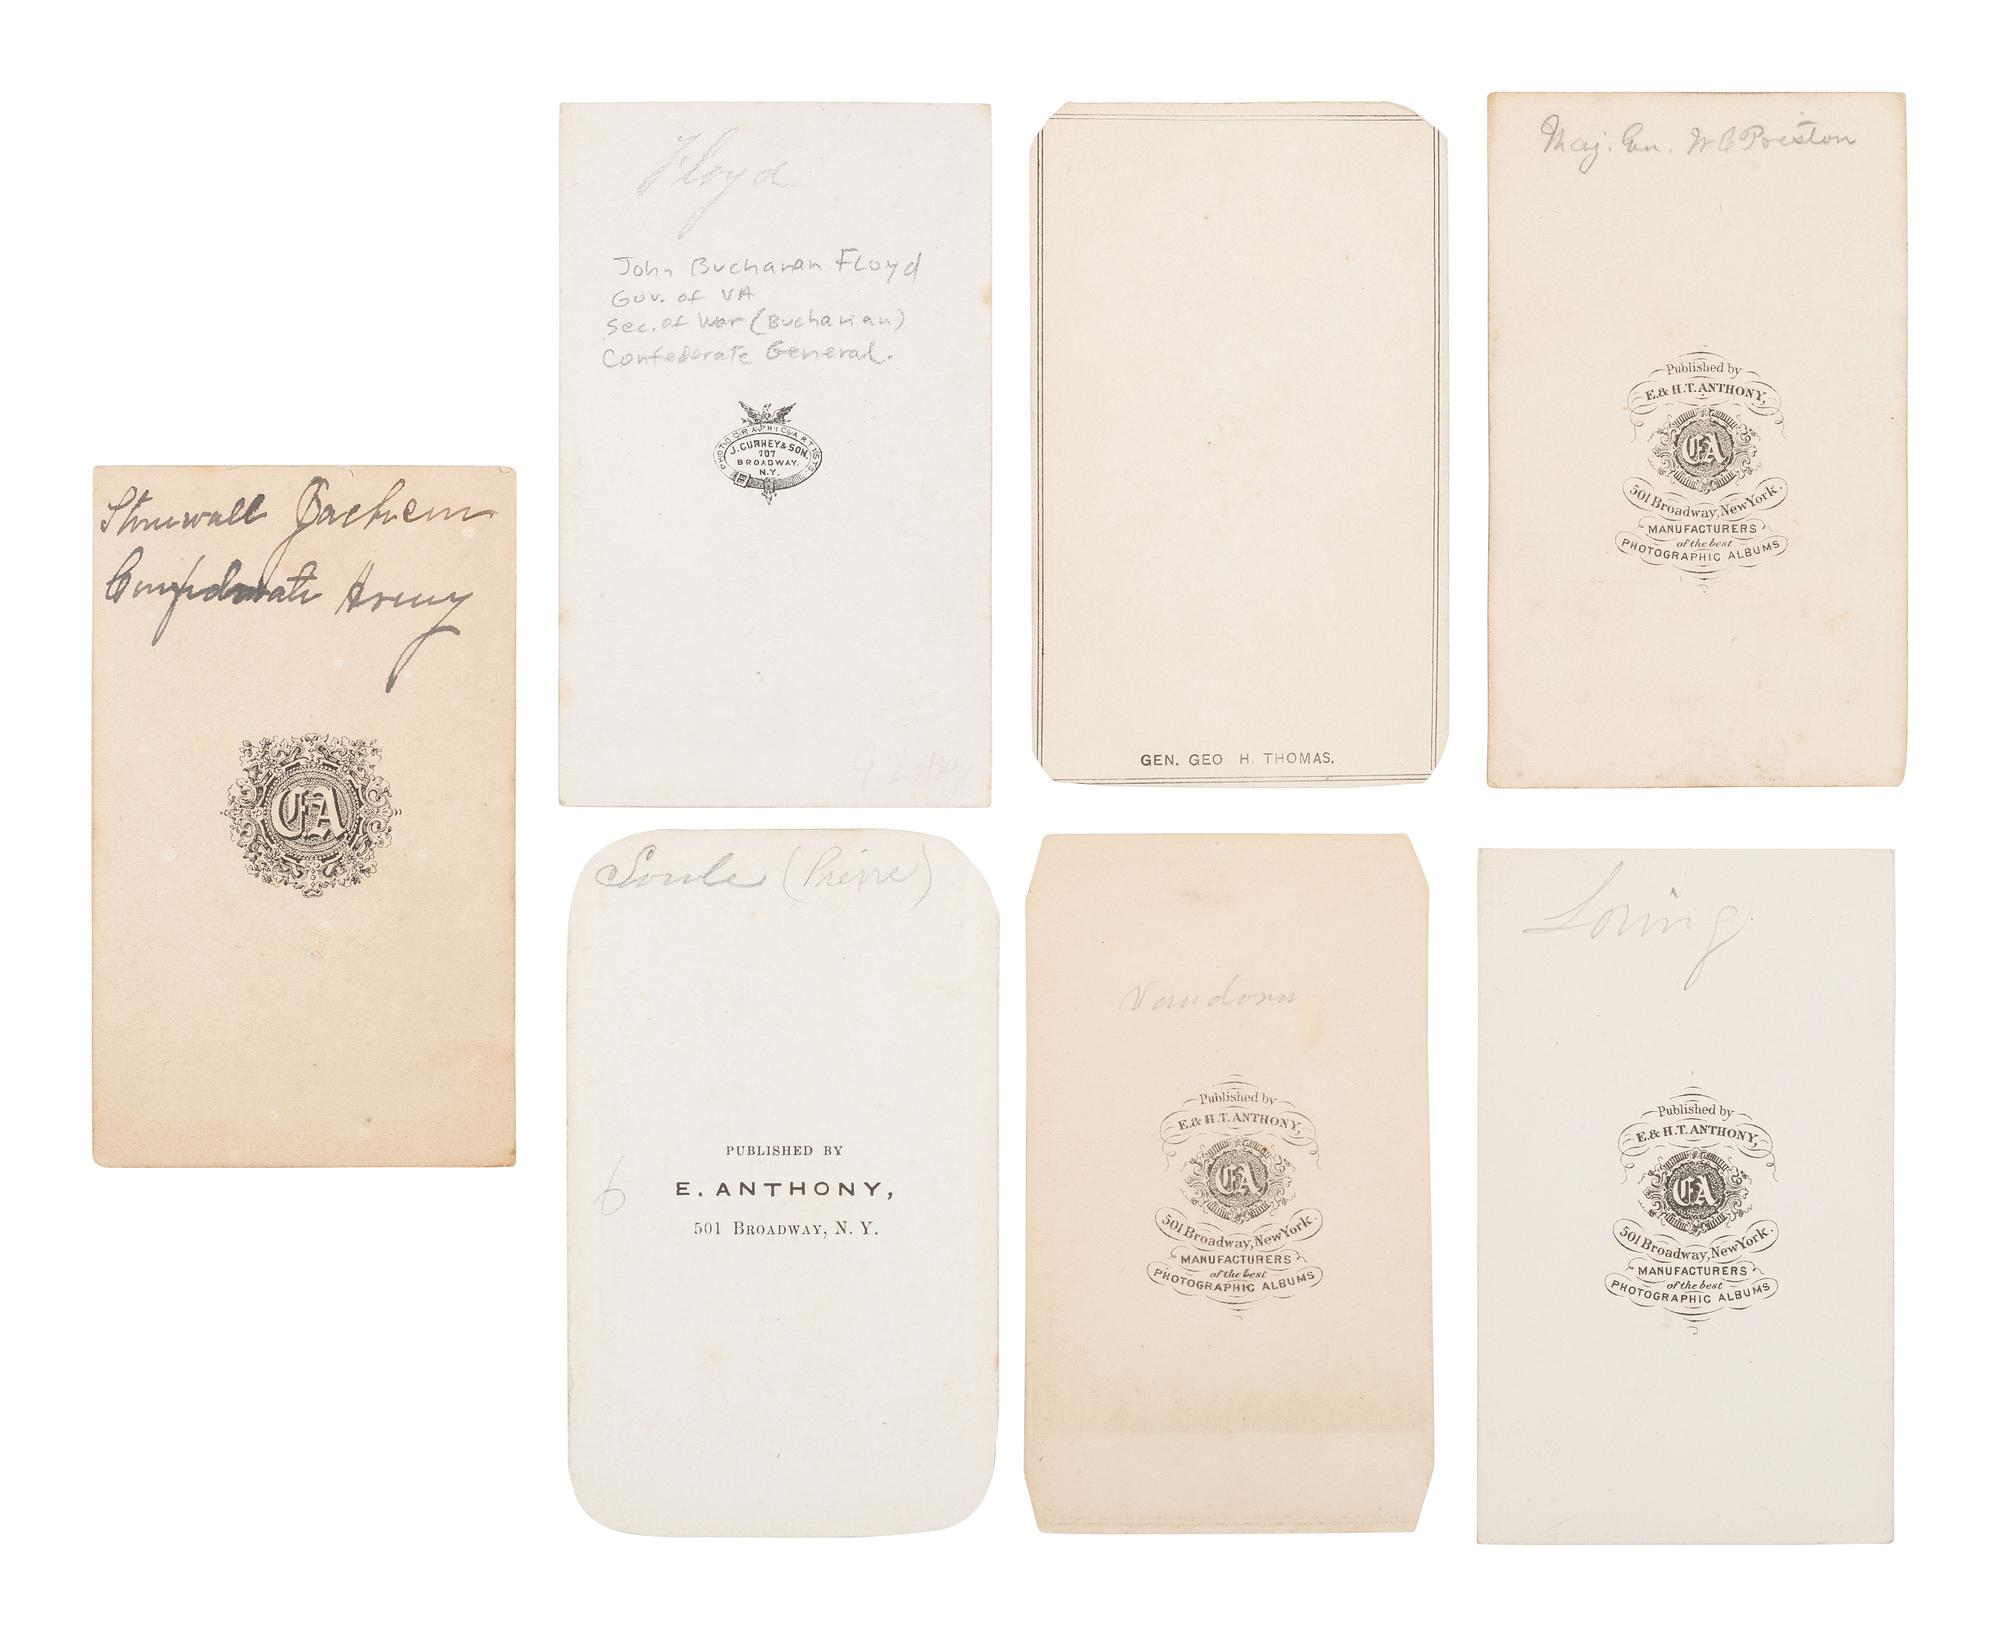 Stonewall Jackson
Confederate Army
EA
Floyd
John Buchanan Floyd
Gov. of VA
Sec. of War (Buchanan)
Confederate General.
PHOTOGRAPHIC ARTISTS.
J. GURNEY & SON.
707
BROADWAY,
N.Y.
GEN. GEO H. THOMAS.
Maj. Gen. W C Preston
Published by
E. & H.T. ANTHONY,
EA
501 Broadway, New York.
MANUFACTURERS
of the best
PHOTOGRAPHIC ALBUMS
Soule (Pierre)
PUBLISHED BY
E. ANTHONY,
6
501 BROADWAY, N. Y.
Vandorn
Published by
E. & H.T. ANTHONY,
EA
501 Broadway, New York.
MANUFACTURERS
of the best
PHOTOGRAPHIC ALBUMS
Loring
Published by
E. & H.T. ANTHONY,
EA
501 Broadway, New York.
MANUFACTURERS
of the best
PHOTOGRAPHIC ALBUMS